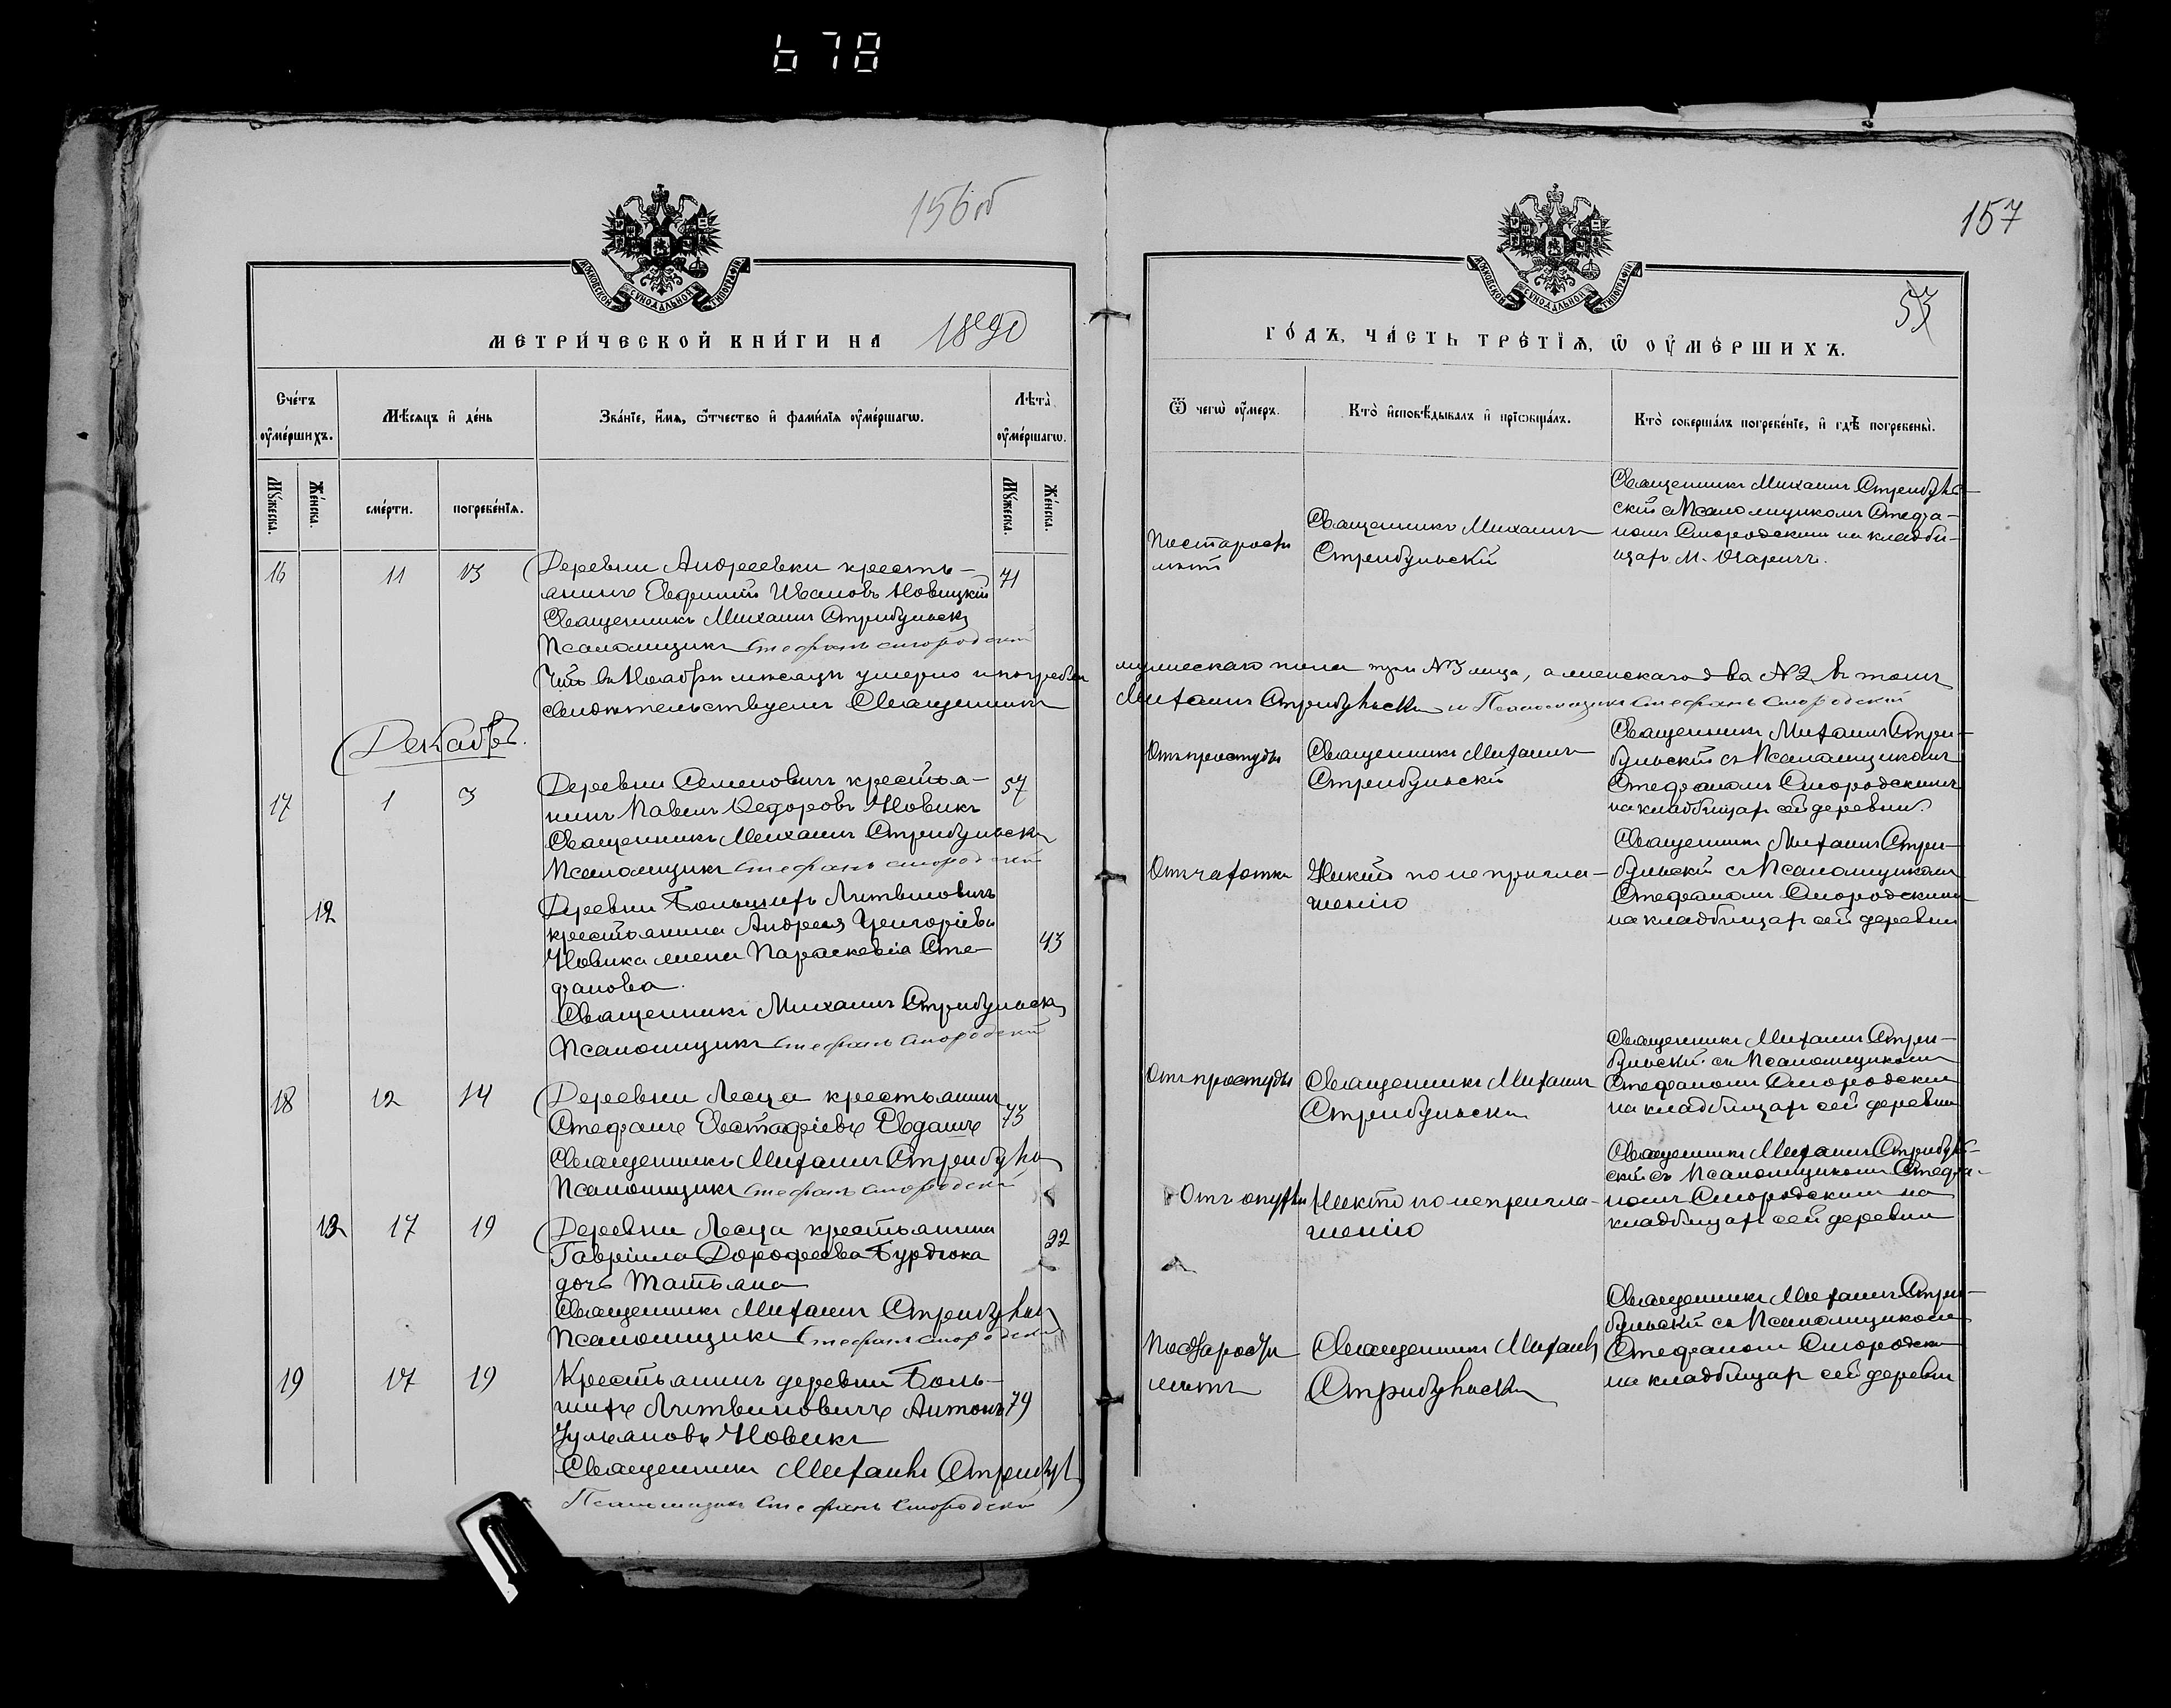 678
156об
157
53
МОСКОВСКОЙ СУНОДАЛЬНОЙ ТИПОГРАФІИ
МОСКОВСКОЙ СУНОДАЛЬНОЙ ТИПОГРАФІИ
МЕТРИ́ЧЕСКОЙ КНИ́ГИ НА 1890
ГО́ДЪ, ЧА́СТЬ ТРЕ́ТІѦ, Ѡ ОУМЕ́РШИХЪ.
Сче́тъ оуме́ршихъ.
Мѣ́сяцъ и де́нь
Зва́ніе, и́мя, ѻ́тчество и фами́лія оуме́ршагѡ.
Лѣта̀ оуме́ршагѡ.
Ѿ чегѡ̀ оу́меръ.
Кто̀ и҆сповѣ́дывалъ и҆ прїѡбща́лъ.
Кто̀ соверша́лъ погребе́ніе, и҆ гдѣ̀ погребены̀.
Му́жеска.
Же́нска.
сме́рти.
погребе́нія.
Му́жеска.
Же́нска.
16 11 13
Деревни Андреевки кресть-
янинъ Евфимій Ивановъ Новицкій
71
Священникъ Михаилъ Стрибульскій
Псаломщикъ Стефанъ Смородскій
По старости
лѣтъ
Священникъ Михаилъ
Стрибульскій
Священникъ Михаилъ Стрибуль-
скій съ Псаломщикомъ Стефа-
номъ Смородскимъ на кладби-
щахъ м.
Что въ Ноябрѣ мѣсяцѣ умерло и погребено мужескаго пола три №3 лица, а женскаго два №2 въ томъ
свидѣтельствуемъ Священникъ Михаилъ Стрибульскій и Псаломщикъ Стефанъ Смородскій
Декабрь.
17 1 3
Деревни Семеновичъ крестья-
нинъ Павелъ Ѳедоровъ Новикъ
57
Священникъ Михаилъ Стрибульскій
Псаломщикъ Стефанъ Смородскій
Отъ простуды
Священникъ Михаилъ
Стрибульскій
Священникъ Михаилъ Стри-
бульскій съ Псаломщикомъ
Стефаномъ Смородскимъ
на кладбищахъ сей деревни.
12
Деревни Большихъ Литвиновичъ
крестьянина Андрея Григоріева
Новика жена Параскевіа Сте-
фанова.
43
Священникъ Михаилъ Стрибульскій
Псаломщикъ Стефанъ Смородскій
Отъ чахотки
Никѣмъ по не пригла-
шенію
Священникъ Михаилъ Стри-
бульскій съ Псаломщикомъ
Стефаномъ Смородскимъ
на кладбищахъ сей деревни
18 12 14
Деревни Лесца крестьянинъ
Стефанъ Евстафіевъ Евдашъ
73
Священникъ Михаилъ Стрибульскій
Псаломщикъ Стефанъ Смородскій
Отъ простуды
Священникъ Михаилъ
Стрибульскій
Священникъ Михаилъ Стри-
бульскій съ Псаломщикомъ
Стефаномъ Смородскимъ
на кладбищахъ сей деревни
13 17 19
Деревни Лесца крестьянина
Гавріила Дорофеева Бурдюка
дочь Татьяна
22
Священникъ Михаилъ Стрибульскій
Псаломщикъ Стефанъ Смородскій
Отъ опухли
Никѣмъ по не пригла-
шенію
Священникъ Михаилъ Стрибуль-
скій съ Псаломщикомъ Стефа-
номъ Смородскимъ на
кладбищахъ сей деревни
19 17 19
Крестьянинъ деревни Боль-
шихъ Литвиновичъ Антонъ
Ульяновъ Новикъ
79
Священникъ Михаилъ Стрибульскій
Псаломщикъ Стефанъ Смородскій
По старости
лѣтъ
Священникъ Михаилъ
Стрибульскій
Священникъ Михаилъ Стри-
бульскій съ Псаломщикомъ
Стефаномъ Смородскимъ
на кладбищахъ сей деревни